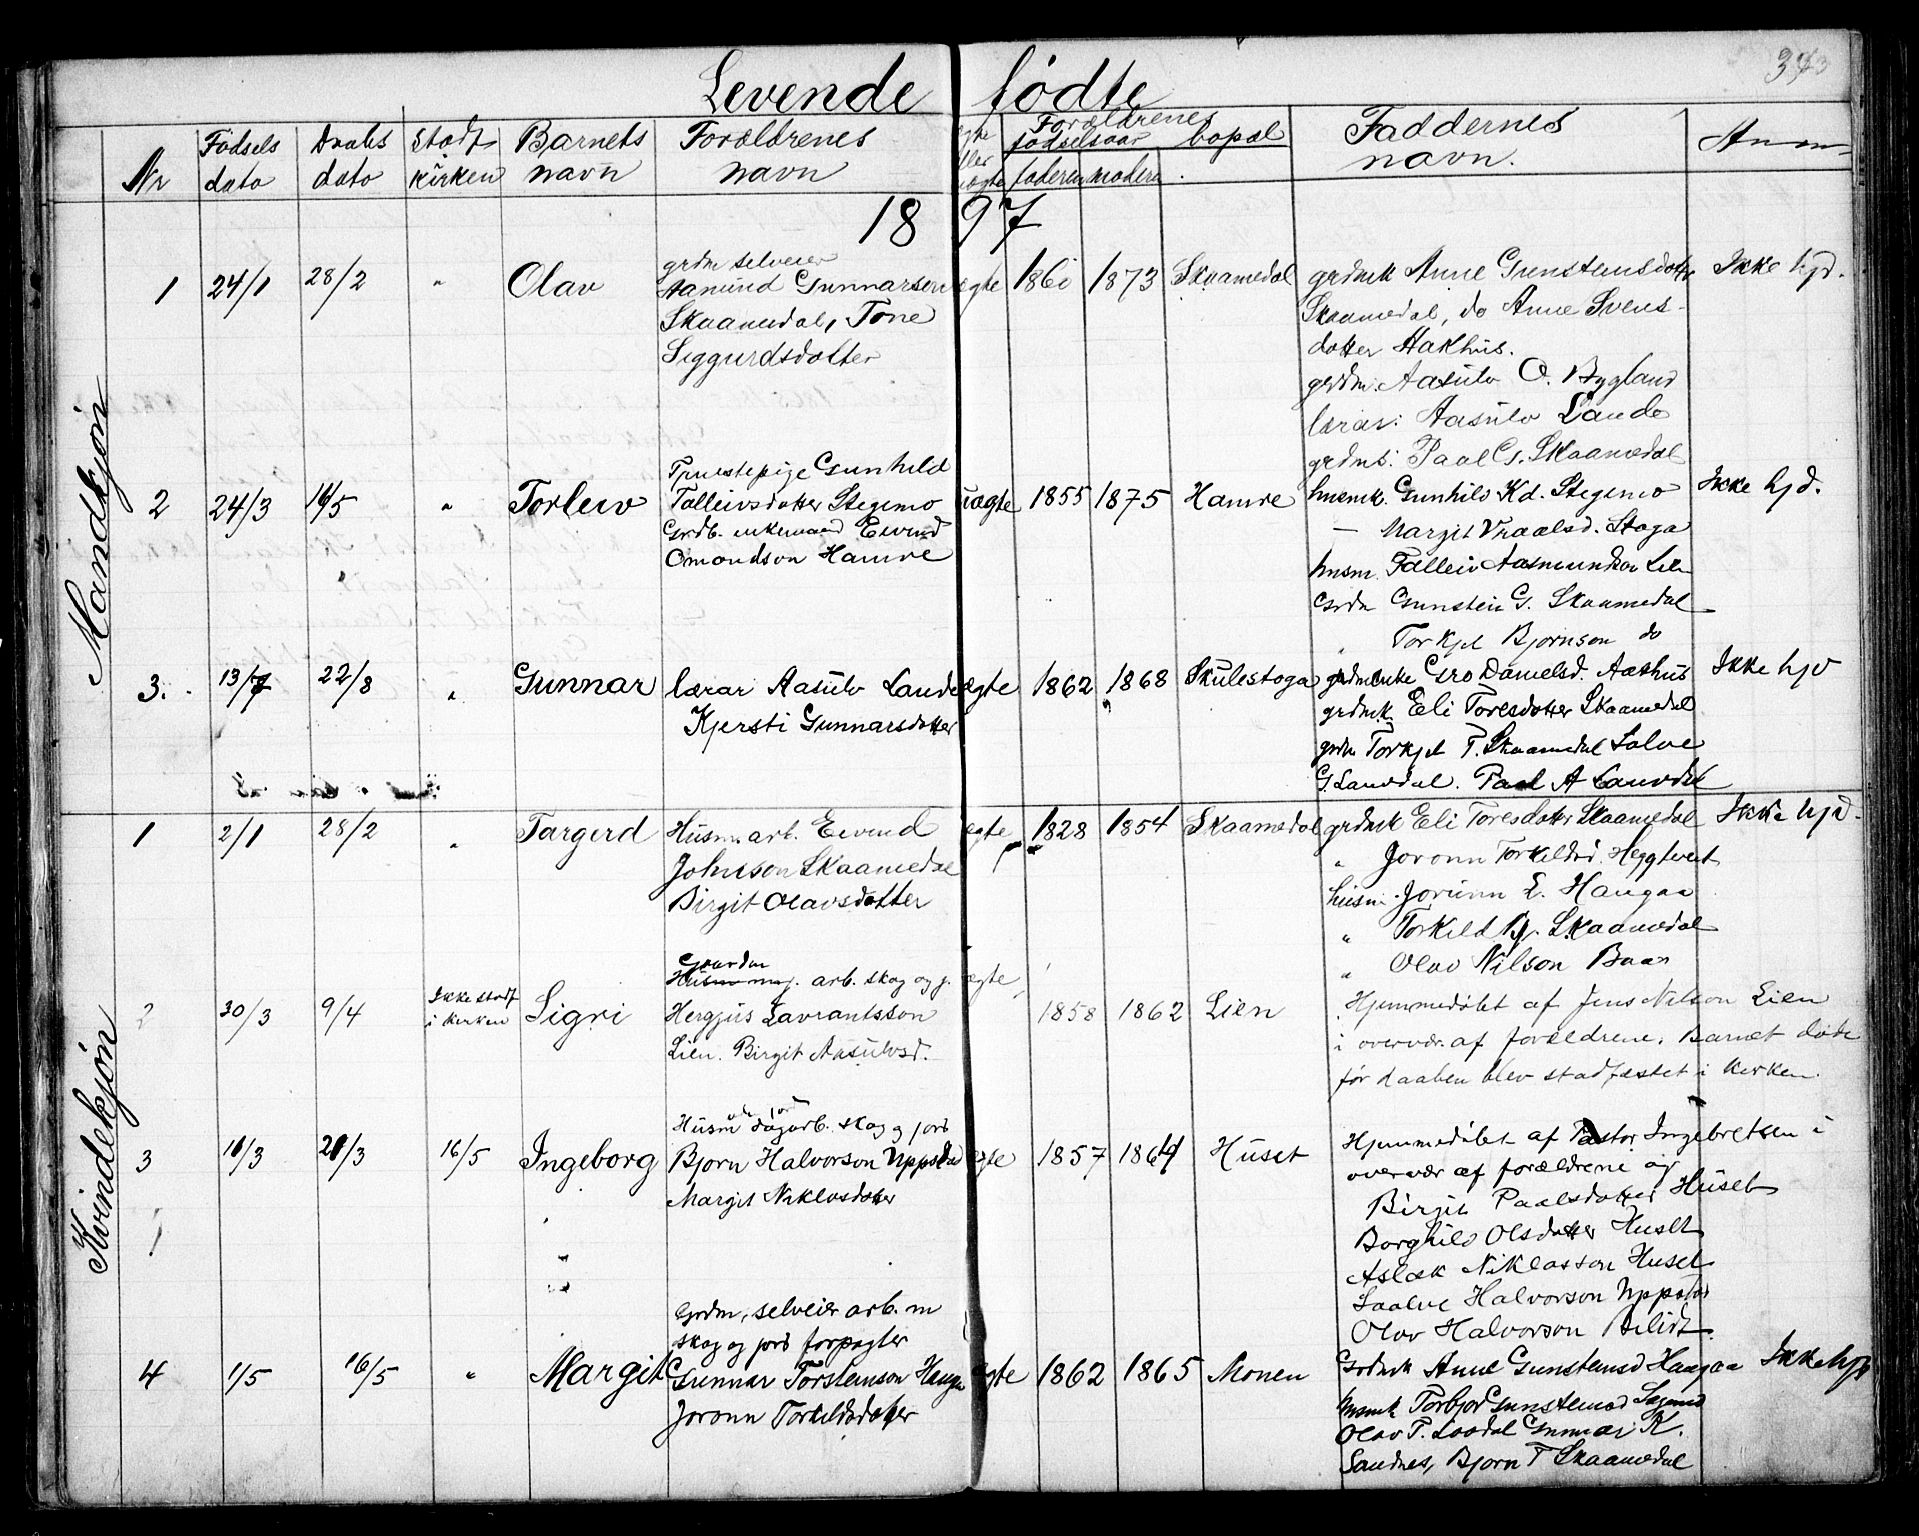 Levende fødte
Nr
Fødsels dato
Daabs dato
Stadf kirken
Barnets navn
Forældrenes navn
Forældrenes fødselsaar
faderen
moderen
bopæl
Faddernes navn.
Anm
1897
Mandkjøn
1 24/1 28/2 " Olav
grdm selveier
Aanund Gunnarsen
Skaamedal, Tone
Siggurdsdotter
ægte 1860 1873 Skaamedal
grdmk Anne Gunsteinsdotter
Skaamedal, do Anne Svens-
dotter Aakhus.
grdm. Aasulv O. Bygland
lærar: Aasulv Lande
grdms: Paal G. Skaamedal
Ikke hjd.
2 24/3 16/5 " Torleiv
Tjenestepige Gunhild
Talleivsdotter Stegemo
Grdb. enkemand Eivind
Omondson Hamre
uægte 1855 1875 Hamre
husmk. Gunhild Kd. Stegemo
— Margit Vraalsd. Stoga
husm. Talleiv Aasmundson Lien
Grdm Gunstein G. Skaamedal
" Torkjel Bjornson do
Ikke hjd.
3. 13/7 22/8 " Gunnar
lærar Aasulv Lande
Kjersti Gunnarsdotter
ægte 1862 1868 Skulestoga
grdmenke Gro Danielsd. Aakhus
grdmk Eli Toresdotter Skaamedal
grdm Torkjel T. Skaamedal Salve
G. Lauvdal. Paal A Lauvdal
Ikke hjd
Kvindekjøn
1 2/1 28/2 " Targerd
Husm. arb. Eivind
Johnson Skaamedal
Birgit Olavsdotter
ægte 1828 1854 Skaamedal
grdmk Eli Toresdotter Skaamedal
" Joronn Torkildsd. Heggtveit
husm. Jorunn E. Haugaa
" Torkild Bj. Skaamedal
" Olav Nilson Baas
Ikke hjd.
2 30/3 9/4 Ikke stadf i kirken Sigri
Gaardm
arb. skog og j.
Hergjus Lavrantsson
Lien. Birgit Aasulvsd.
ægte 1858 1862 Lien
Hjemmedøbt af Jens Nilson Lien
i overvær. af forældrene. Barnet døde
før daaben blev stadfæstet i kirken.
3 10/3 21/3 16/5 Ingeborg
Husm uden jord
dagarb. skog og jord
Bjorn Halvorson Uppstad
Margit Niklosdotter
ægte 1857 1864 Huset
Hjemmedøbt af Pastor Ingebretsen i
overvær af forældrene og
Birgit Paalsdotter Huset
Borghild Olsdotter Huset
Aslak Niklasson Huset
Saalve Halvorson Uppstad
Olav Halvorson Belidt.
4 1/5 16/5 " Margit
Grdm, selveier arb. m
skog og jord forpagter
Gunnar Torsteinson Haugaa
Joronn Torkildsdotter
ægte 1862 1865 Monen
Grdmk Anne Gunsteinsd Haugaa
husmk Torbjor Gunsteinsd
Olav T. Loodal Gunnar K.
Sandnes, Bjorn T Skaamedal
Ikke hjd